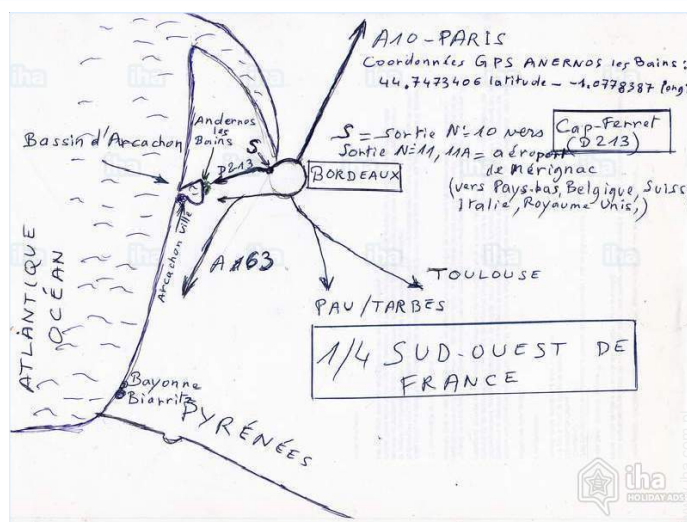 A10-PARIS
Coordonnées GPS ANERNOS les Bains:
44.7473406 latitude - -1.0778387 longi
S = sortie N°10 vers Cap-Ferret (D213)
Sortie N=11, 11A = aéroport
de Mérignac
(vers Pays-bas, Belgique, Suiss
Italie, Royaume Unis,)
Andernos
les
Bains
Bassin d'Arcachon
S
D213
BORDEAUX
Arcachon ville
A 163
TOULOUSE
PAU/TARBES
ATLANTIQUE
OCÉAN
1/4 SUD-OUEST DE
FRANCE
Bayonne
Biarritz
PYRÉNÉES
iha
HOLIDAY ADS